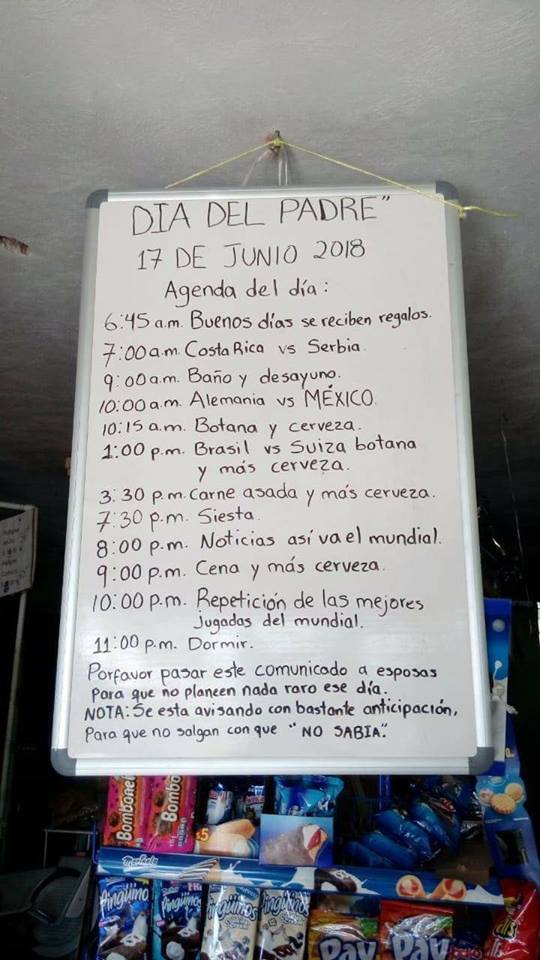 DIA DEL PADRE"
17 DE JUNIO 2018
Agenda del día:
6:45 a.m. Buenos días se reciben regalos.
7:00 a.m. Costa Rica vs Serbia.
9:00 a.m. Baño y desayuno.
10:00 a.m. Alemania vs MÉXICO.
10:15 a.m. Botana y cerveza.
1:00 p.m. Brasil vs Suiza botana
y más cerveza.
3:30 p.m. Carne asada y más cerveza.
7:30 p.m. Siesta.
8:00 p.m. Noticias así va el mundial.
9:00 p.m. Cena y más cerveza.
10:00 p.m. Repetición de las mejores
jugadas del mundial.
11:00 p.m. Dormir.
Porfavor pasar este comunicado a esposas
Para que no planeen nada raro ese día.
NOTA: Se esta avisando con bastante anticipación,
Para que no salgan con que "NO SABIA".
Marinela
Pingüinos
Pingüinos
Pay
Pay